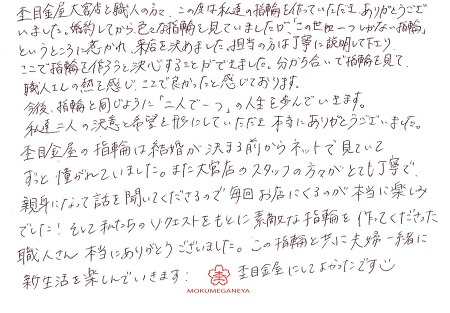 杢目金屋大宮店と職人の方々、この度は私達の指輪を作っていただき ありがとうござ
いました。婚約してから、色々な指輪を見ていましたが、「この世に一つしかない指輪」
というところに惹かれ、来店を決めました。担当の方は丁寧に説明して下さり、
ここで指輪を作ろうと決心することができました。分かち合いで指輪を見て、
職人さんの熱を感じ、ここで良かったと感じております。
今後、指輪と同じように「二人で一つ」の人生を歩んでいきます。
私達二人の決意と希望を形にしていただき 本当にありがとうございました。
杢目金屋の指輪は結婚が決まる前からネットで見ていて
ずっと憧れていました。また大宮店のスタッフの方々がとても丁寧で、
親身になって話を聞いてくださるので毎回お店にくるのが本当に楽しみ
でした！そして私たちのリクエストをもとに素敵な指輪を作ってくださった
職人さん 本当にありがとうございました。この指輪と共に夫婦一緒に
新生活を楽しんでいきます！ 杢目金屋にしてよかったです
MOKUMEGANEYA